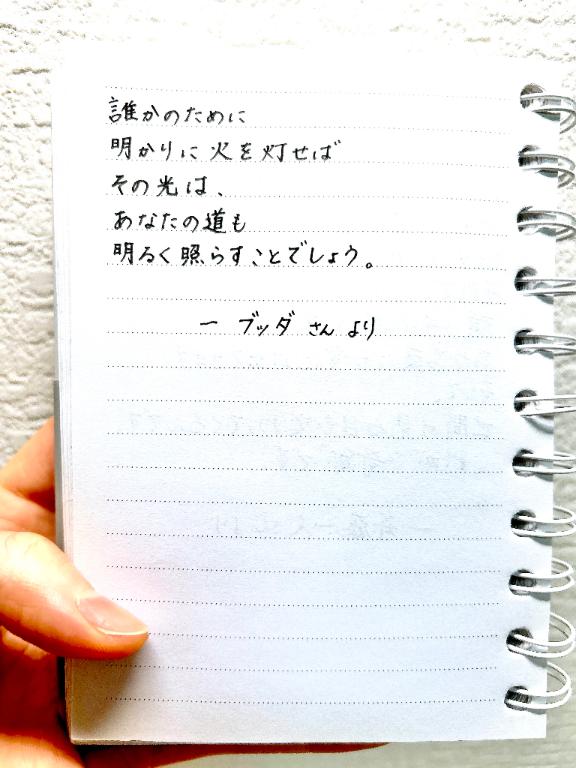 誰かのために
明かりに火を灯せば
その光は、
あなたの道も
明るく照らすことでしょう。
ー ブッダさんより